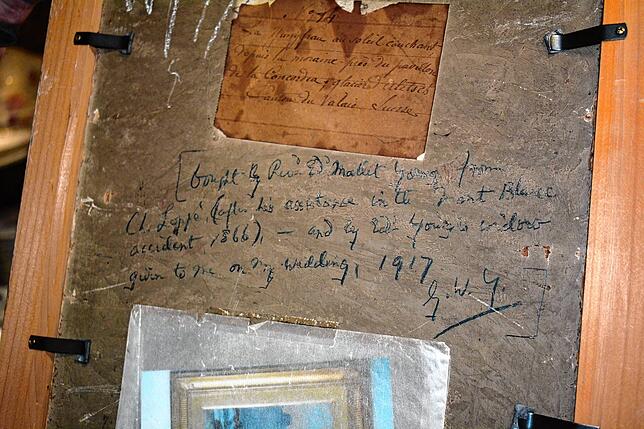 N° 14
La Jungfrau au soleil couchant
depuis la moraine près du pavillon
de la Concordia, glacier d'Aletsch
Canton du Valais Suisse.
[bought by Revd Ed Mallet Young from
G. Loppé (after his assistance in the Mont Blanc
accident, 1866), – and by Ed. Young's widow
given to me on my wedding, 1917
G. W. Y.]